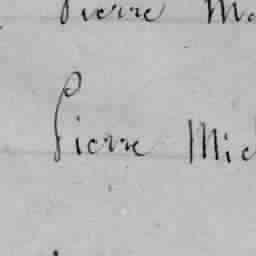 Pierre M
Pierre Mic